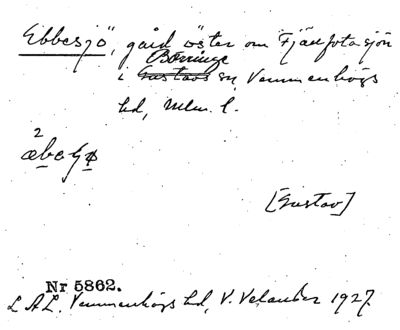 Ebbesjö, gård öster om Fjällfotasjön
Börringe
i Gustavs sn, Vemmenhögs
hd, Mlm. l.
2
[Gustav]
Nr 5862.
L A L. Vemmenhögs hd, V. Velander 1927